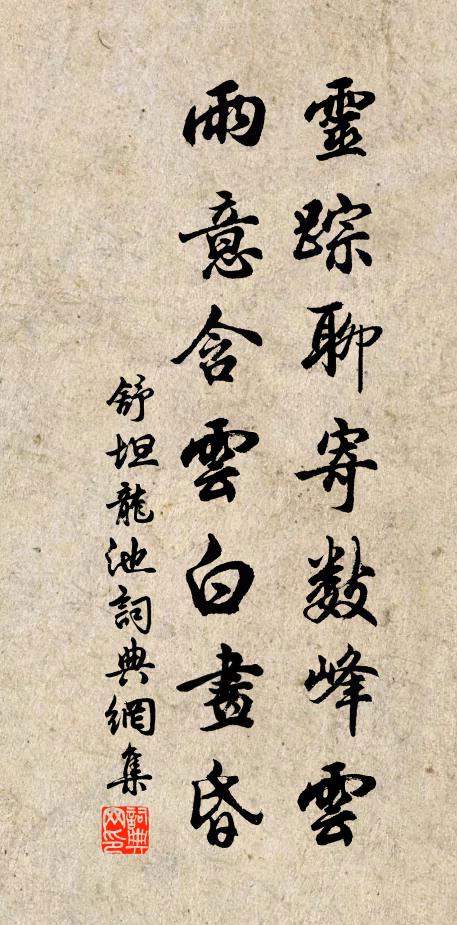 靈踪聊寄數峰雲
雨意含雲白晝昏
舒坦龍池詞典網集
詞典网印